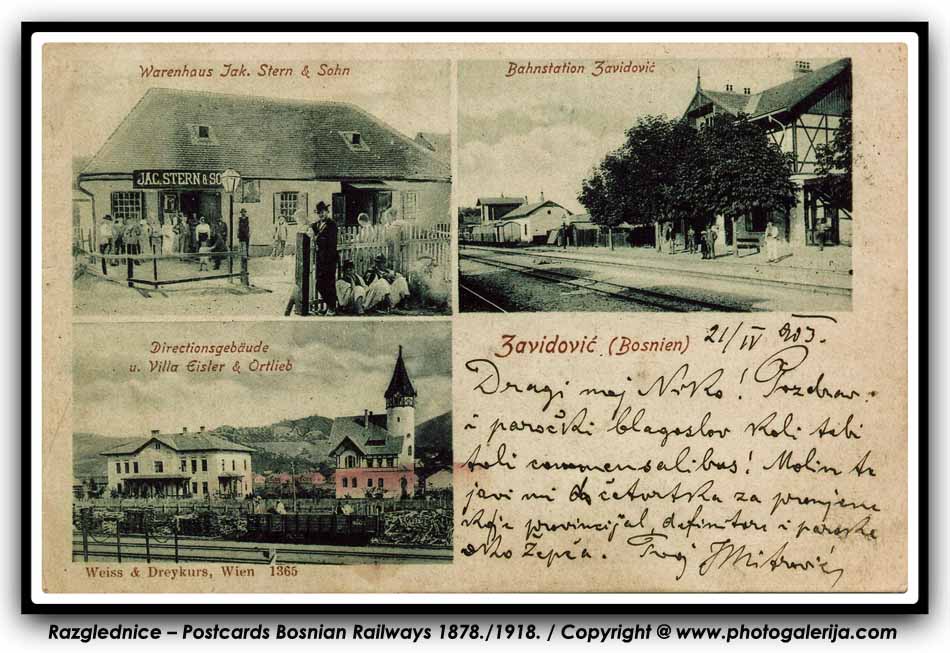 Warenhaus Jak. Stern & Sohn
JAC. STERN & SO
Bahnstation Zavidović
Directionsgebäude
u. Villa Eisler & Ortlieb
Zavidović (Bosnien) 21/IV 903.
Dragi moj Nirko! Pozdrav
i paročki blagoslov koli tebi
toli commensalibus! Molim te
javi mi do četvrtka za promjene
koje provincijal, definitore i paroke
oko Žepča. Tvoj
Weiss & Dreykurs, Wien 1365
Razglednice – Postcards Bosnian Railways 1878./1918. / Copyright @ www.photogalerija.com